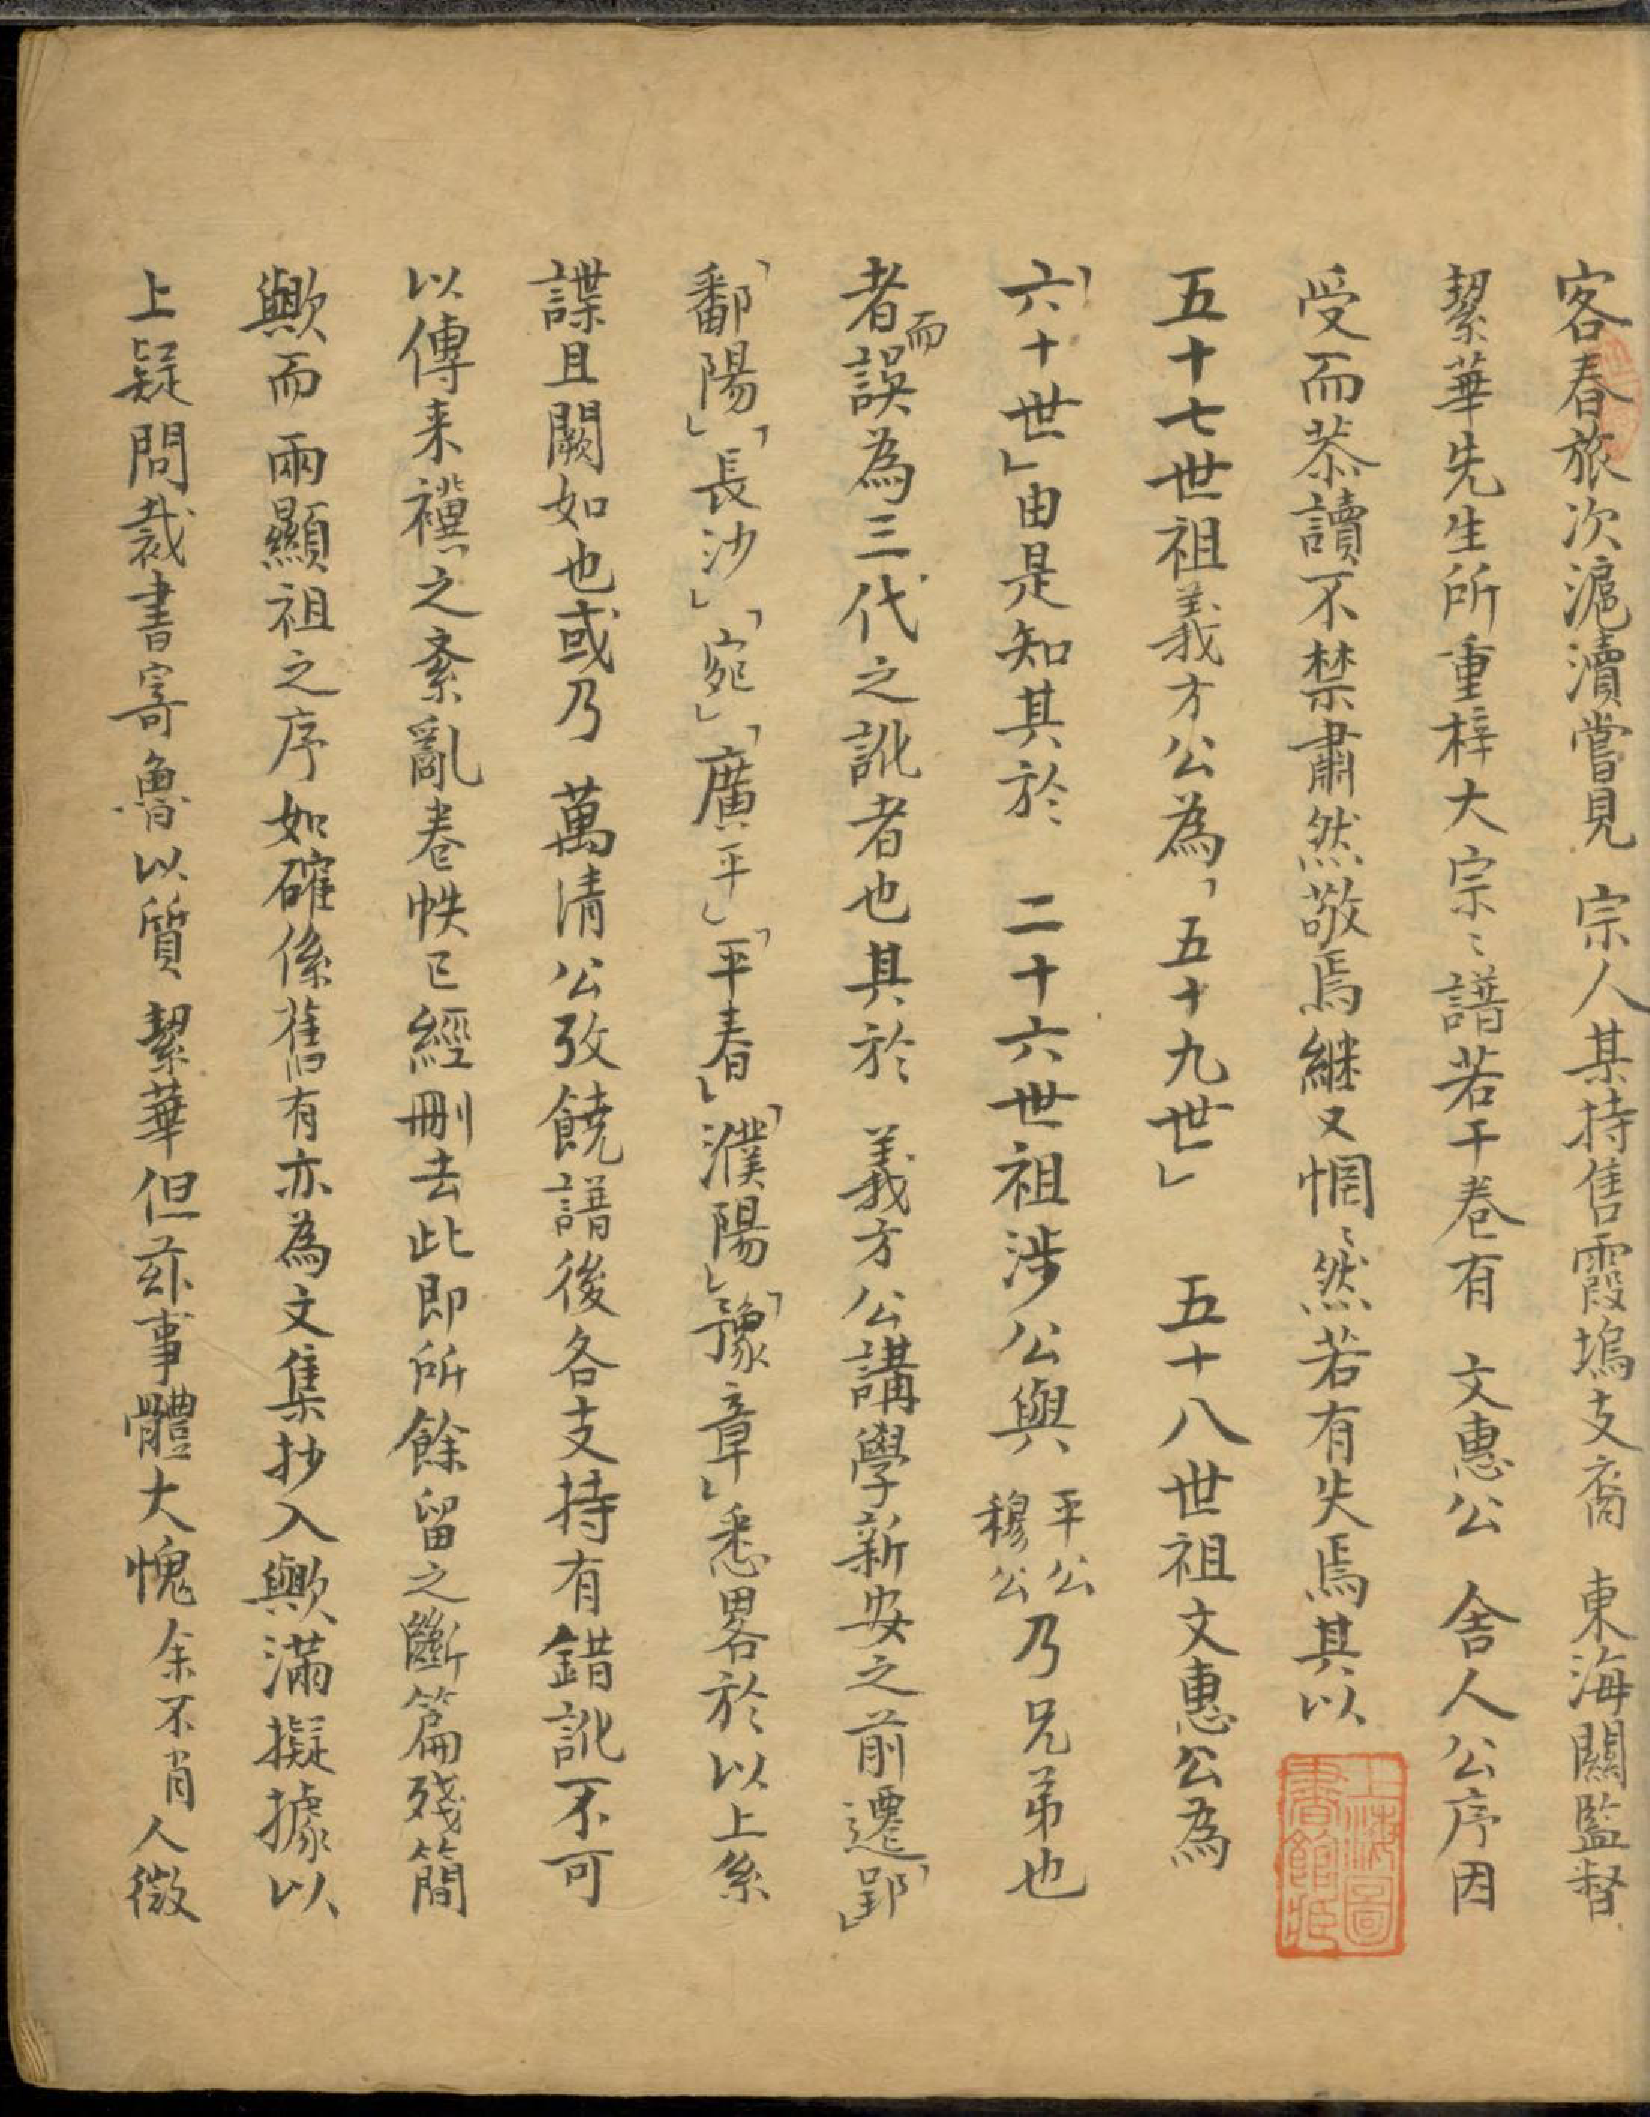 客春旅次滬瀆嘗見 宗人某持售霞塢支裔 東海關監督
絜華先生所重梓大宗〻譜若干卷有 文惠公 舍人公序因
受而恭讀不禁肅然敬焉繼又惘〻然若有失焉其以
五十七世祖義方公為「五十九世」 五十八世祖文惠公為
「六十世」由是知其於 二十六世祖涉公與平公穆公乃兄弟也
者而誤為三代之訛者也其於 義方公講學新安之前遷「郢」
「鄱陽」「長沙」「宛」「廣平」「平春」「濮陽」「豫章」悉畧於以上系
諜且闕如也或乃 萬清公攷饒譜後各支持有錯訛不可
以傳来禩之紊亂卷帙已經刪去此即所餘留之斷篇殘簡
歟而 兩顯祖之序如確係舊有亦為文集抄入歟滿擬據以
上疑問裁書寄魯以質 絜華但茲事體大愧余不肖人微
上海圖書館藏